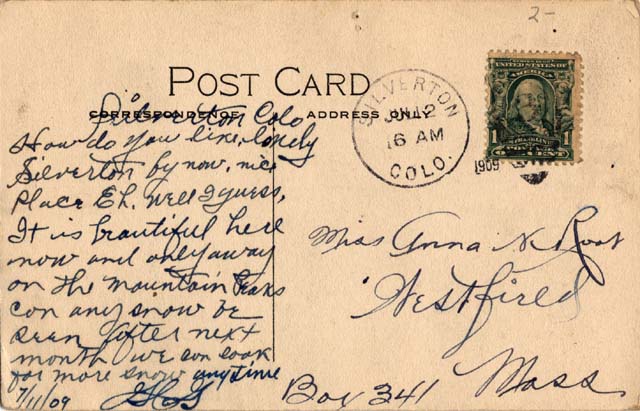 2-
POST CARD
CORRESPONDENCE
ADDRESS ONLY
Silverton Colo
How do you like, lonely
Silverton by now, nice
Place Eh. well I guess,
It is beautiful here
now and only away
on the mountain Peaks
can any snow be
seen after next
month we can look
for more snow any time
7/11/09
SILVERTON
12
6 AM
COLO.
1909
UNITED STATES OF AMERICA
1
1
Miss Anna N. Root
Westfield
Mass
Box 341